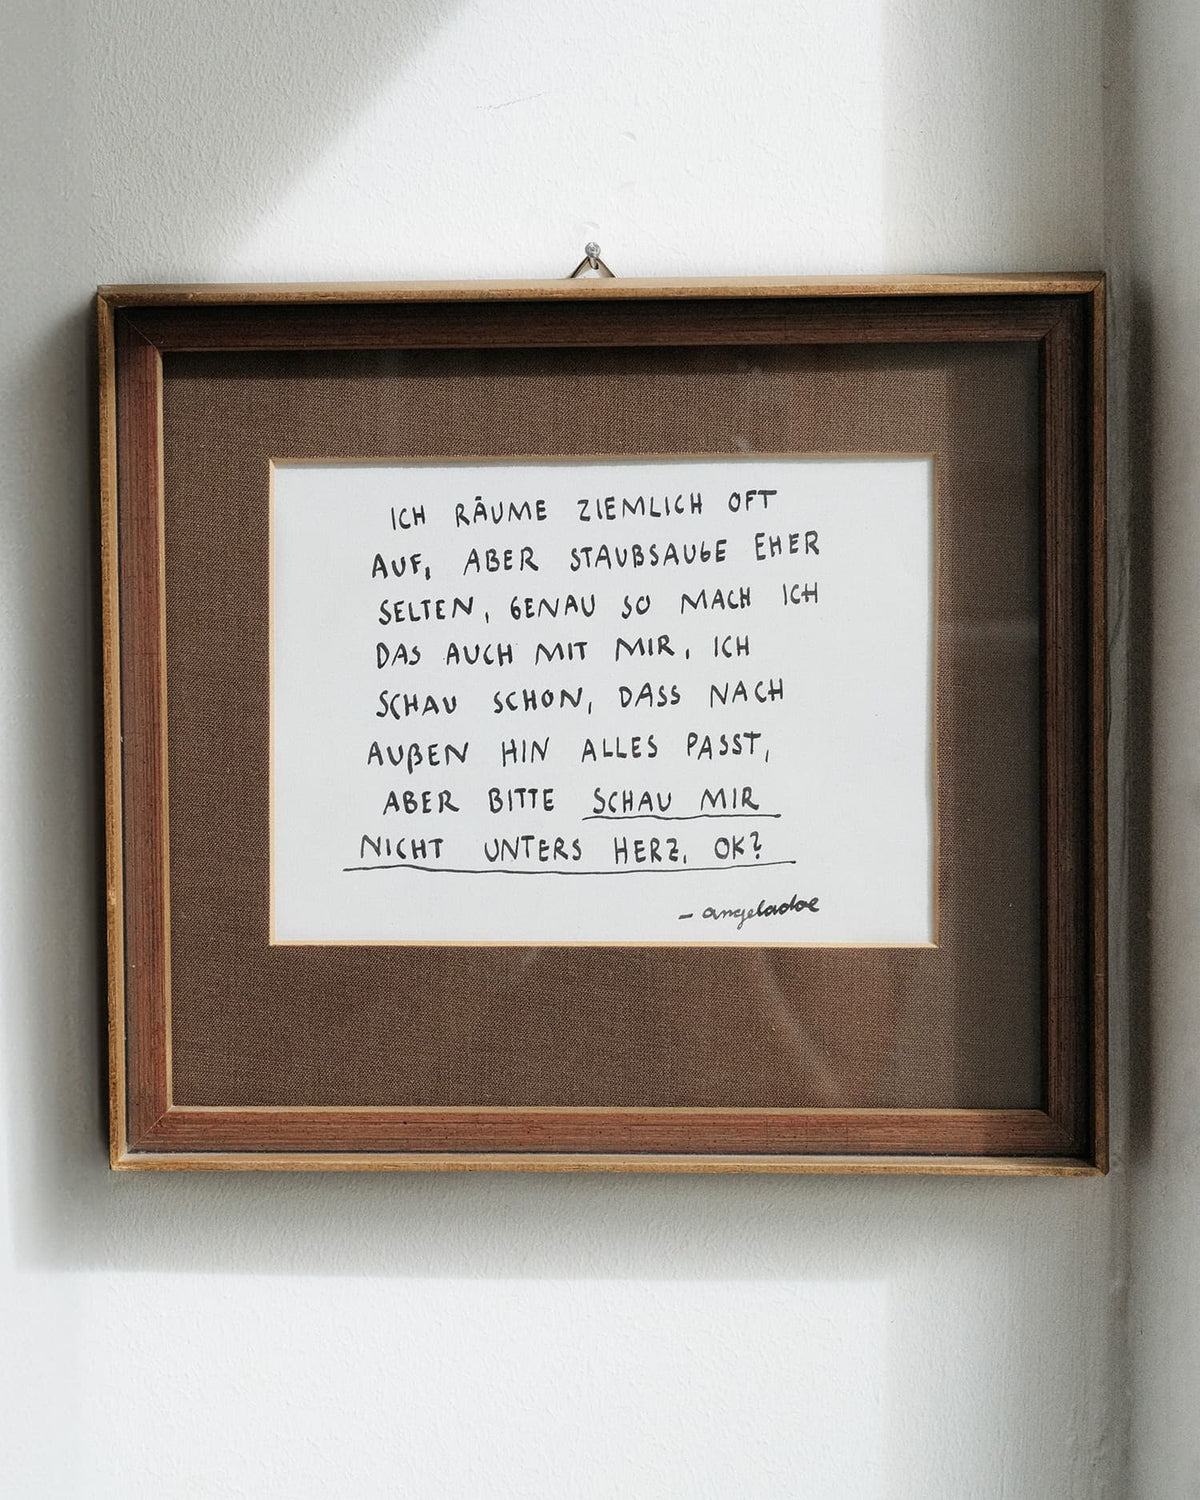 ICH RÄUME ZIEMLICH OFT
AUF, ABER STAUBSAUGE EHER
SELTEN, GENAU SO MACH ICH
DAS AUCH MIT MIR, ICH
SCHAU SCHON, DASS NACH
AUßEN HIN ALLES PASST,
ABER BITTE SCHAU MIR
NICHT UNTERS HERZ, OK?
– angeladoe